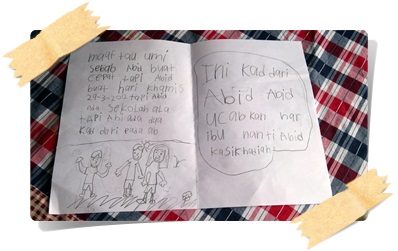 maaf tau umi
sebab Abid buat
cepat tapi Abid
buat hari khamis
tapi Abid
ada sekolah
tapi Abi ada
kad dari pada ab
Ini kad dari
Abid Abid
ucabkan har
ibu nanti Abid
kasi khadiah